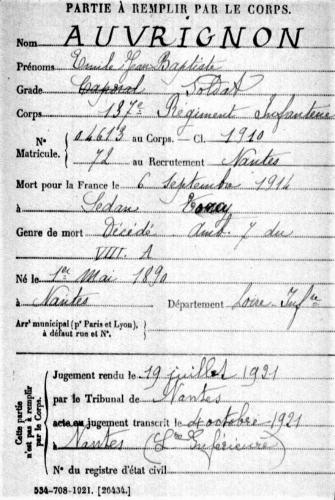 PARTIE À REMPLIR PAR LE CORPS.
Nom AUVRIGNON
Prénoms Emile Jean Baptiste
Grade Caporal Soldat
Corps 137e Régiment Infanterie
N° 04613 au Corps. — Cl. 1910
Matricule. 72 au Recrutement Nantes
Mort pour la France le 6 Septembre 1914
à Sedan
Genre de mort Décédé amb. 7 du
VIII. A
Né le 1er Mai 1890
à Nantes Département Loire-Infre
Arrt municipal (pr Paris et Lyon),
à défaut rue et N°.
Cette partie
n'est pas à remplir
par le Corps.
Jugement rendu le 19 juillet 1921
par le Tribunal de Nantes
acte ou jugement transcrit le 4 octobre 1921
à Nantes (Loire Inférieure)
N° du registre d'état civil
534-708-1921. [26434.]